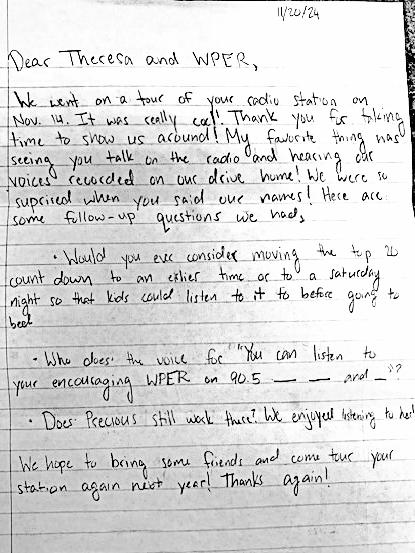 11/20/24
Dear Theresa and WPER,
We went on a tour of your radio station on
Nov. 14. It was really cool! Thank you for taking
time to show us around! My favorite thing was
seeing you talk on the radio and hearing our
voices recorded on our drive home! We were so
suprised when you said our names! Here are
some follow-up questions we had,
· Would you ever consider moving the top 20
count down to an erlier time or to a saturday
night so that kids could listen to it to before going to
bed
· Who does the voice for "You can listen to
your encouraging WPER on 90.5 __ __ and _"?
· Does Precious still work there? We enjoyed listening to her!
We hope to bring some friends and come tour your
station again next year! Thanks again!